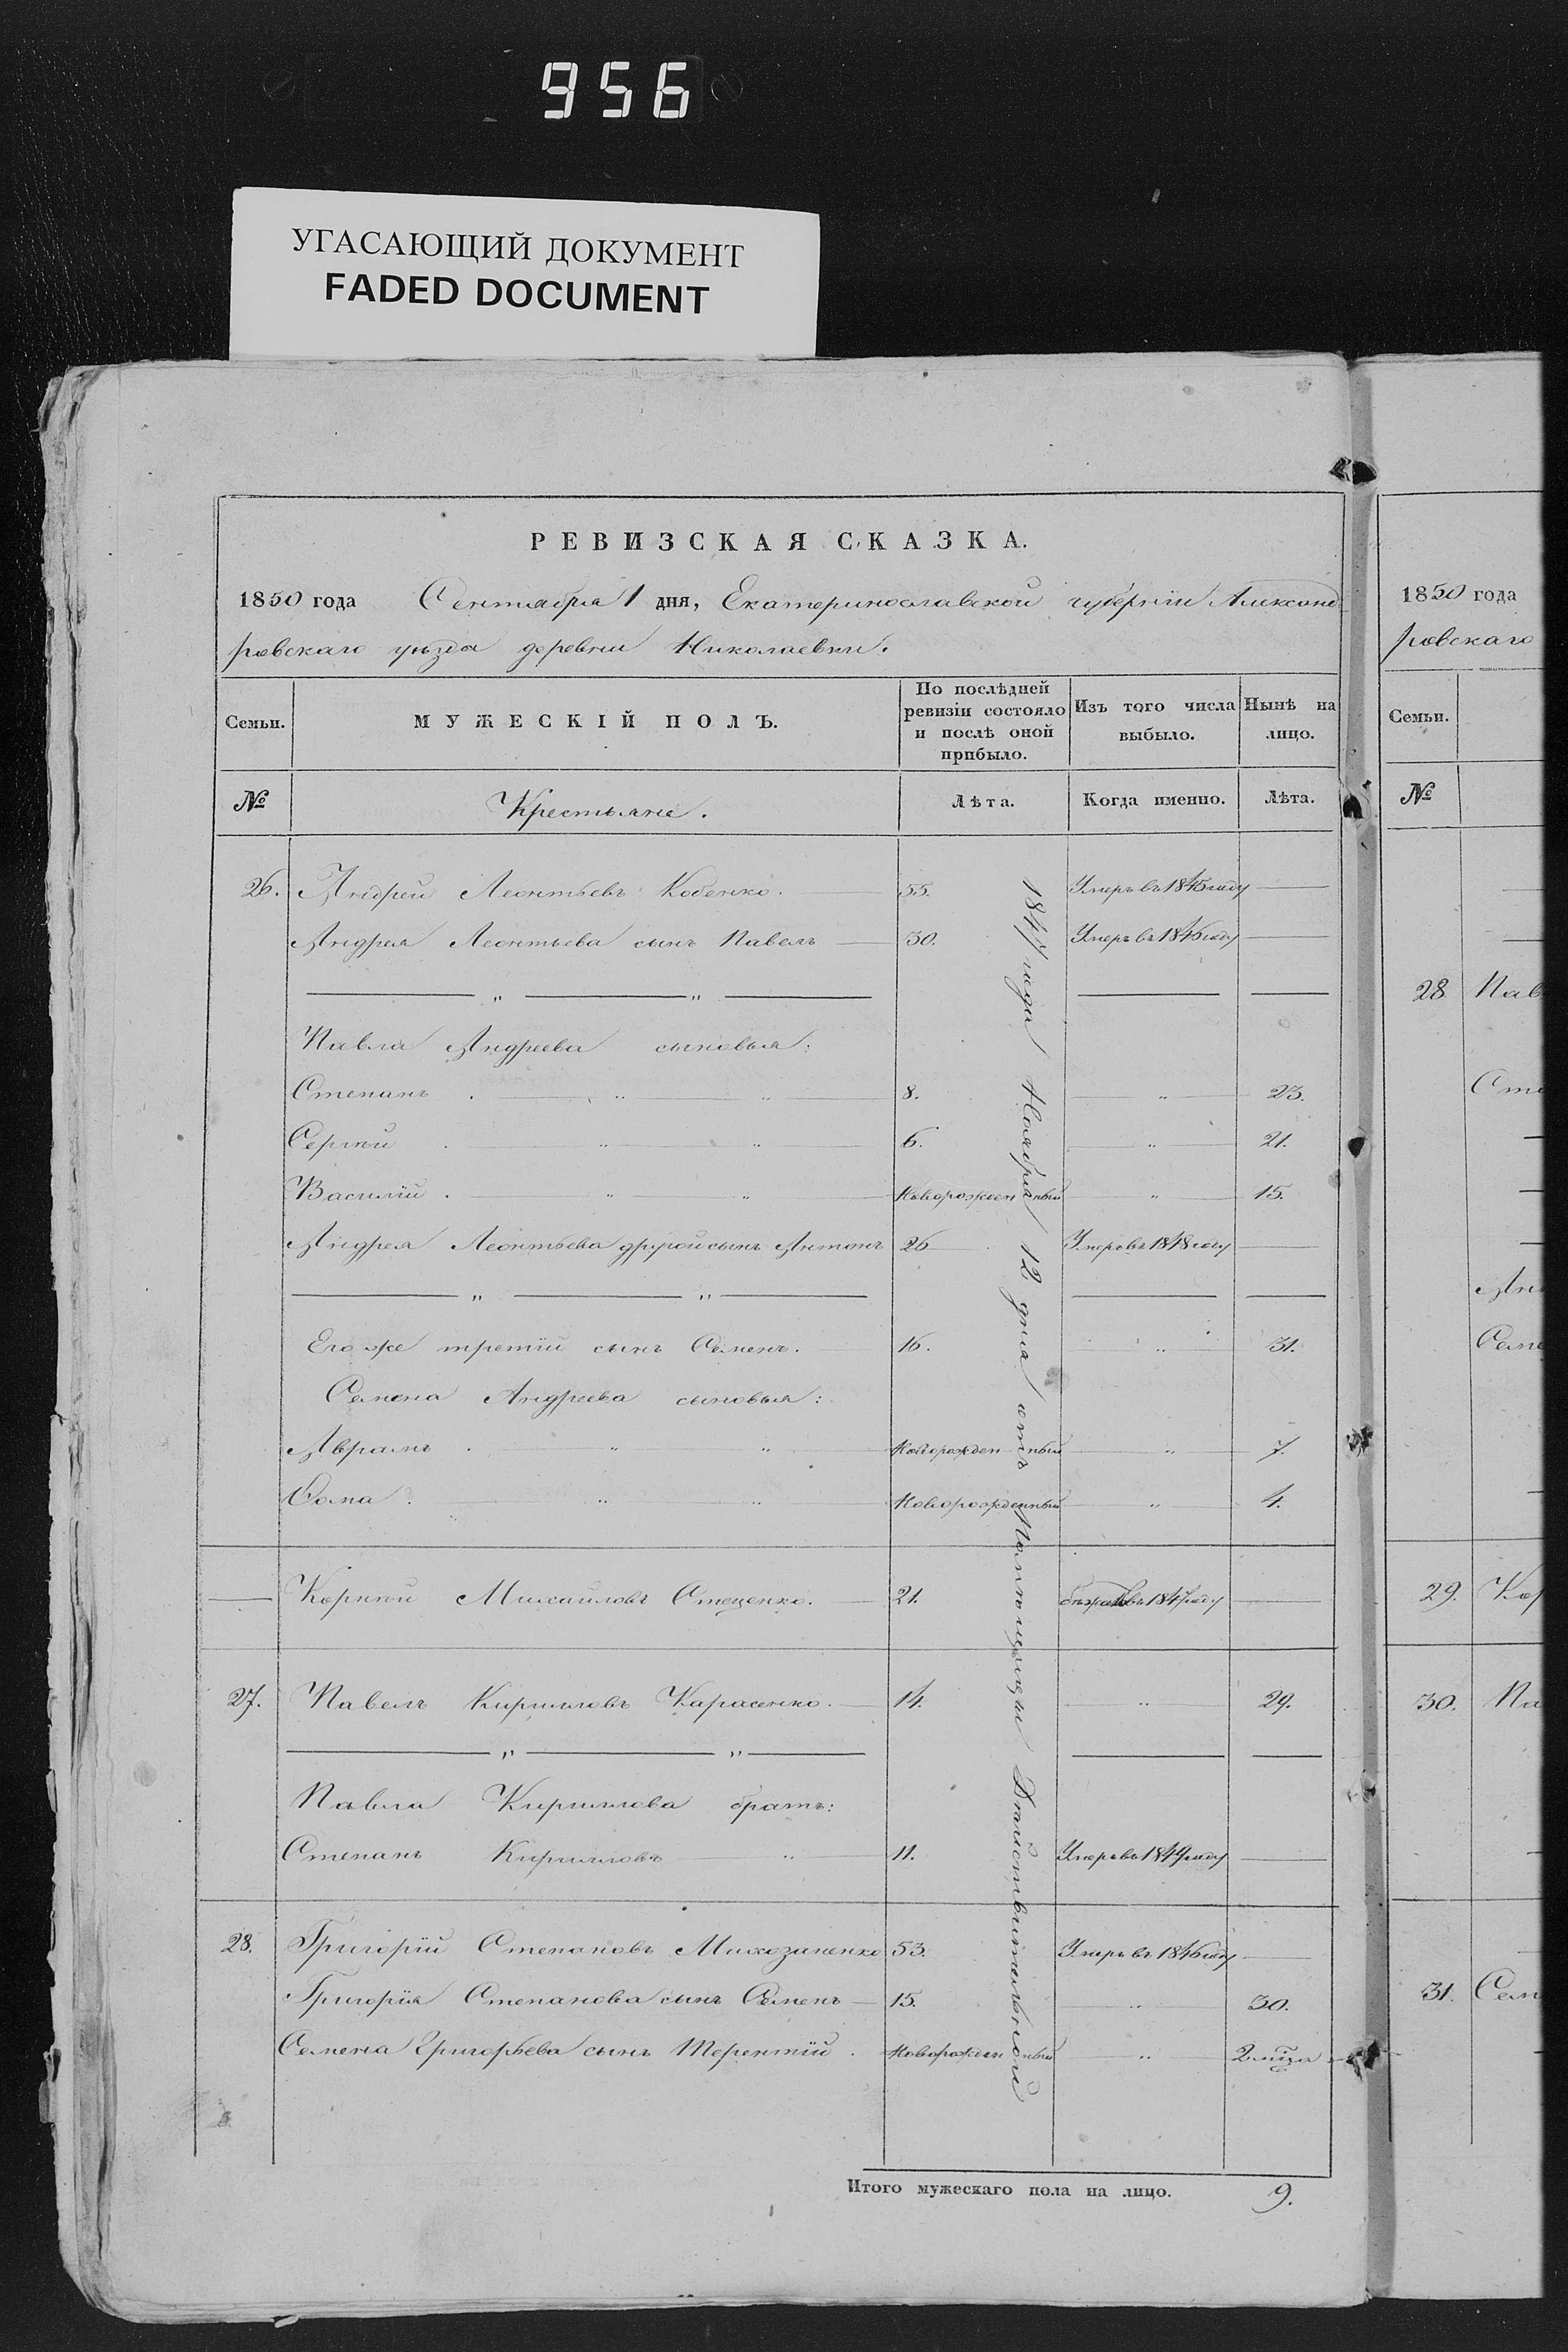 956
УГАСАЮЩИЙ ДОКУМЕНТ
FADED DOCUMENT
РЕВИЗСКАЯ СКАЗКА.
1850 года Сентября 1 дня, Екатеринославской губерніи Александ-
ровскаго уѣзда деревни Николаевки.
Семьи. МУЖЕСКІЙ ПОЛЪ. По послѣдней ревизіи состояло и послѣ оной прибыло. Изъ того числа выбыло. Нынѣ на лицо.
№ Крестьяне. Лѣта. Когда именно. Лѣта.
26. Андрей Леонтьевъ Кобенко. 55. Умеръ въ 1845 году —
Андрея Леонтьева сынъ Павелъ — 30. Умеръ въ 1846 году —
— „ — „ — — —
Павла Андреева сыновья:
Степанъ . „ „ 8. „ 23.
Сергѣй . „ „ 6. „ 21.
Василій . „ „ Новорожденный „ 15.
Андрея Леонтьева другой сынъ Антонъ 26 Умеръ въ 1848 году —
— „ — „ — — —
Его же третій сынъ Семенъ. 16. „ 31.
Семена Андреева сыновья:
Аврамъ . „ „ Новорожденный „ 7.
Фома . „ „ Новорожденный „ 4.
— Корнѣй Михайловъ Стеценко. 21. въ 1847 году —
27. Павелъ Кирилловъ Карасенко. 14. „ 29.
— „ — „ — — —
Павла Кириллова братъ:
Степанъ Кирилловъ „ 11. Умеръ въ 1849 году —
28. Григорій Степановъ 53. Умеръ въ 1846 году —
Григорія Степанова сынъ Семенъ — 15. „ 30.
Семена Григорьева сынъ Терентій . Новорожденный „ 2 мѣсяца
Ноября 12 дня отъ Помѣщицы Дѣйствительной
Итого мужескаго пола на лицо. 9.
1850 года
ровскаго
Семьи.
№
28 Пав
Сте
Семе
29. Кор
30. Па
31. Сем